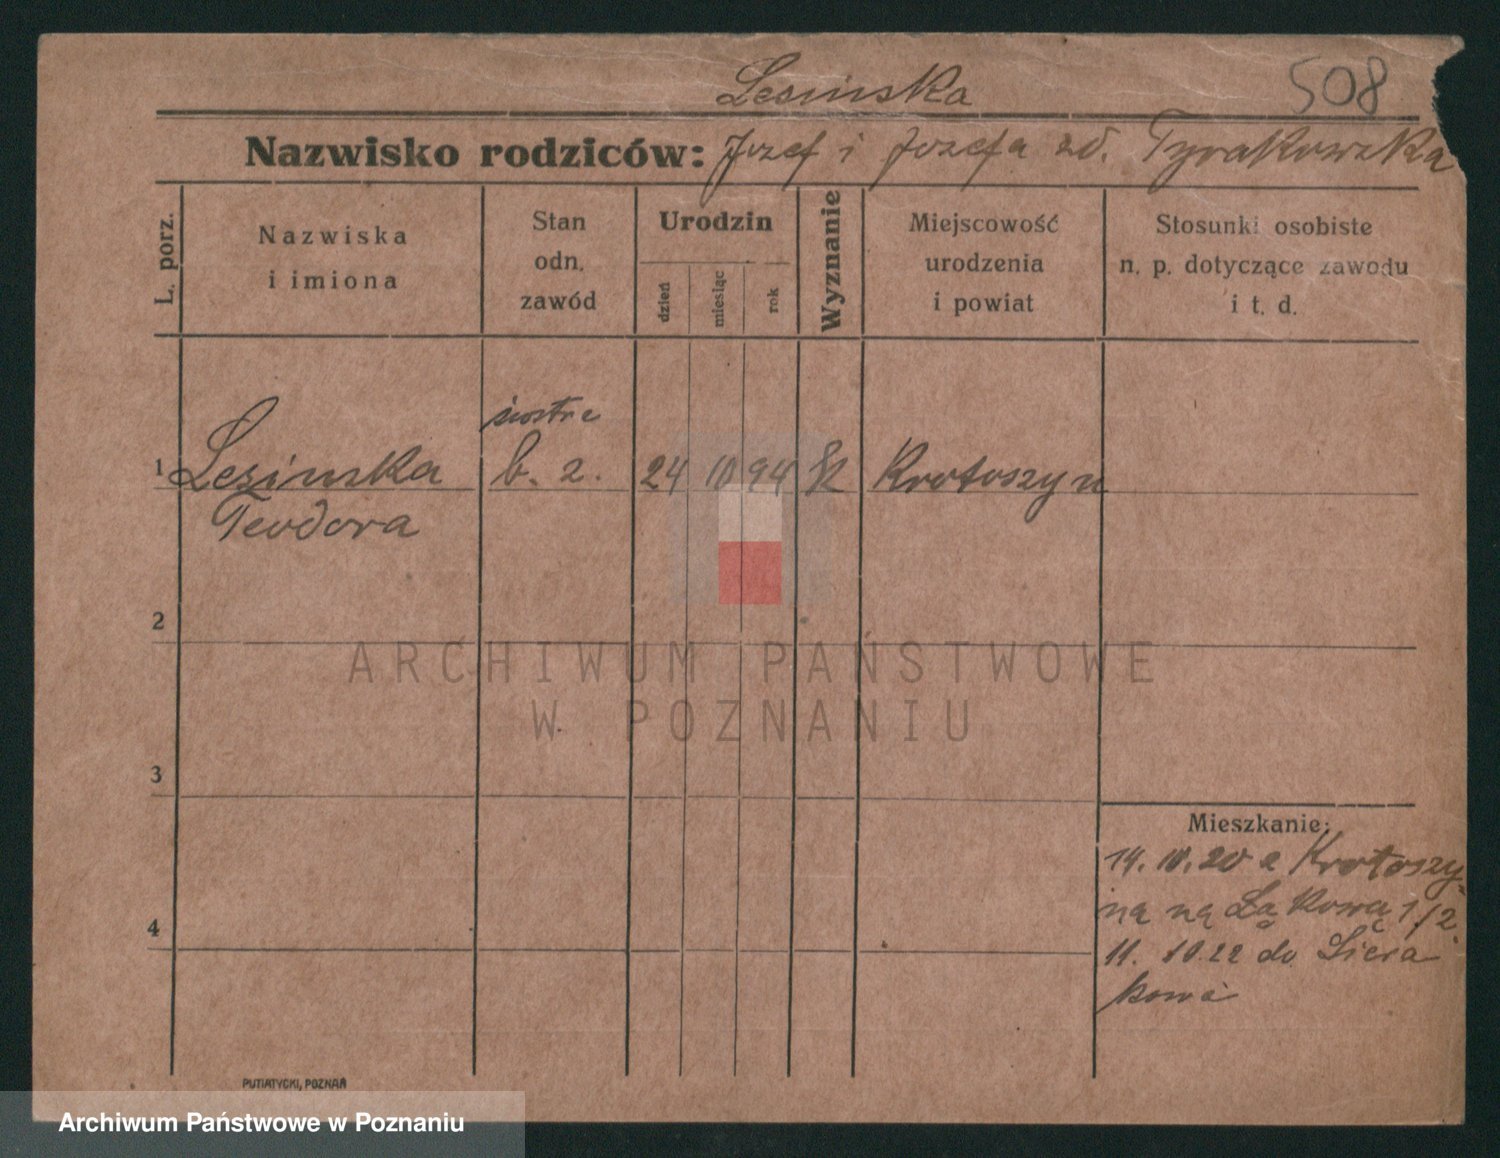 Lesinska
508
Nazwisko rodziców: Jozef i Jozefa zd. Tyrakowska
L. porz.
Nazwiska
i imiona
Stan
odn.
zawód
Urodzin
dzień
miesiąc
rok
Wyznanie
Miejscowość
urodzenia
i powiat
Stosunki osobiste
n. p. dotyczące zawodu
i t. d.
siostra
1 Lesinska b. z. 24 10 94 K Krotoszyn
Teodora
2
ARCHIWUM PAŃSTWOWE
W POZNANIU
3
Mieszkanie:
14. 10. 20 z Krotoszy-
na na Łąkową 1/2.
4
11. 10 22 do Siera
kowa
PUTIATYCKI, POZNAŃ
Archiwum Państwowe w Poznaniu